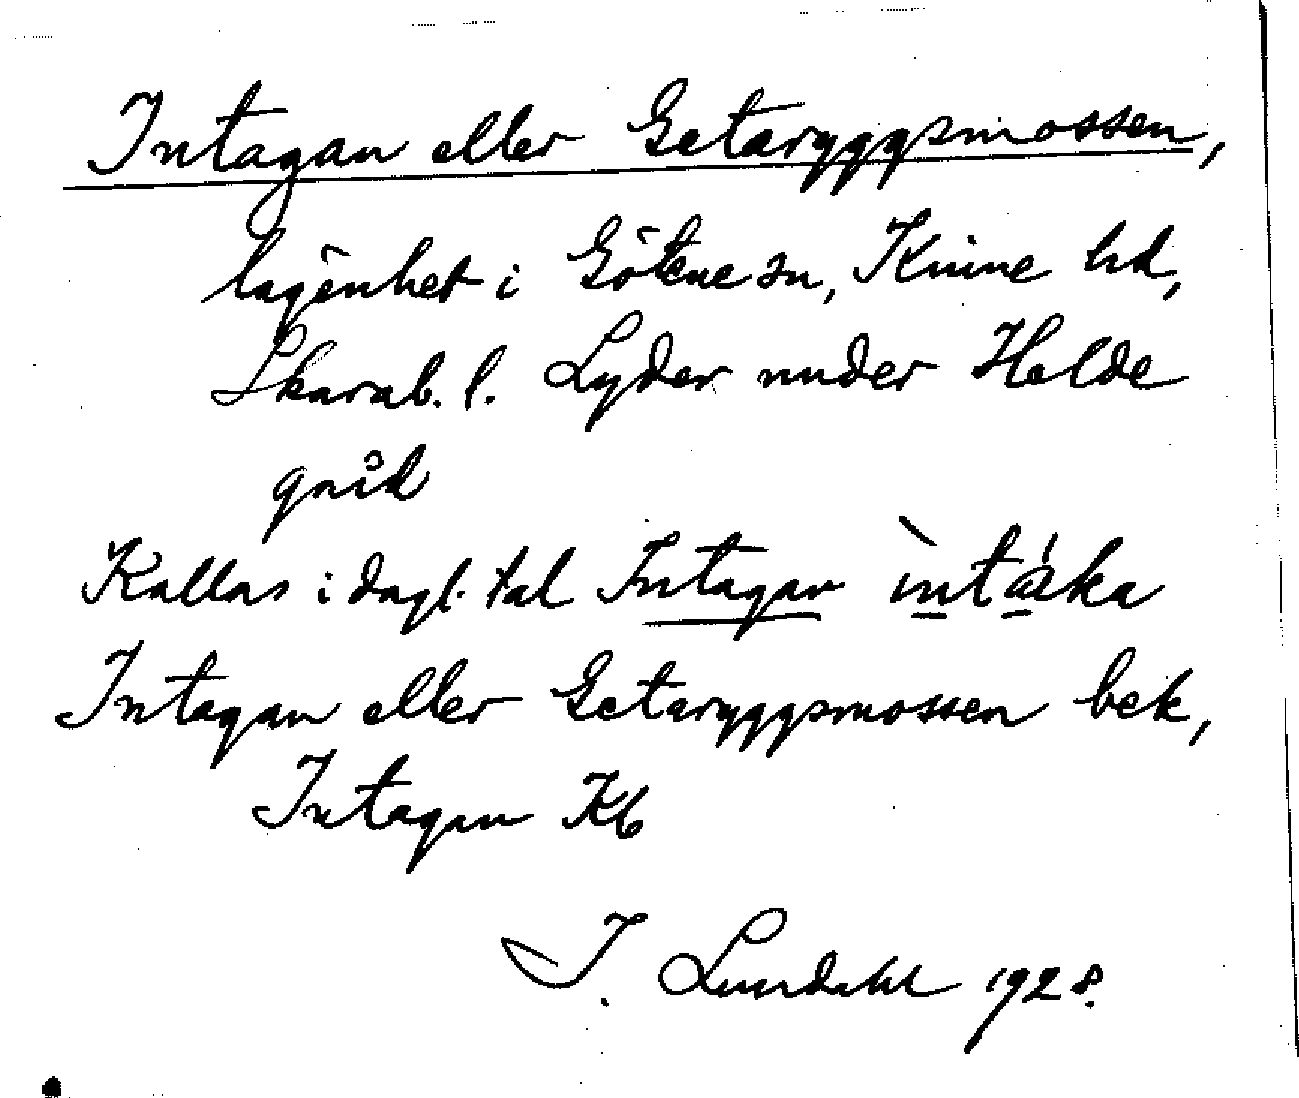 Intagan eller Getaryggsmossen,
lägenhet i Götene sn, Kinne hd,
Skarab. l. Lyder under Holde
gård
Kallas i dagl. tal Intagan ìntáka
Intagan eller Getaryggsmossen bek,
Intagan Kb
I. Lundahl 1928.